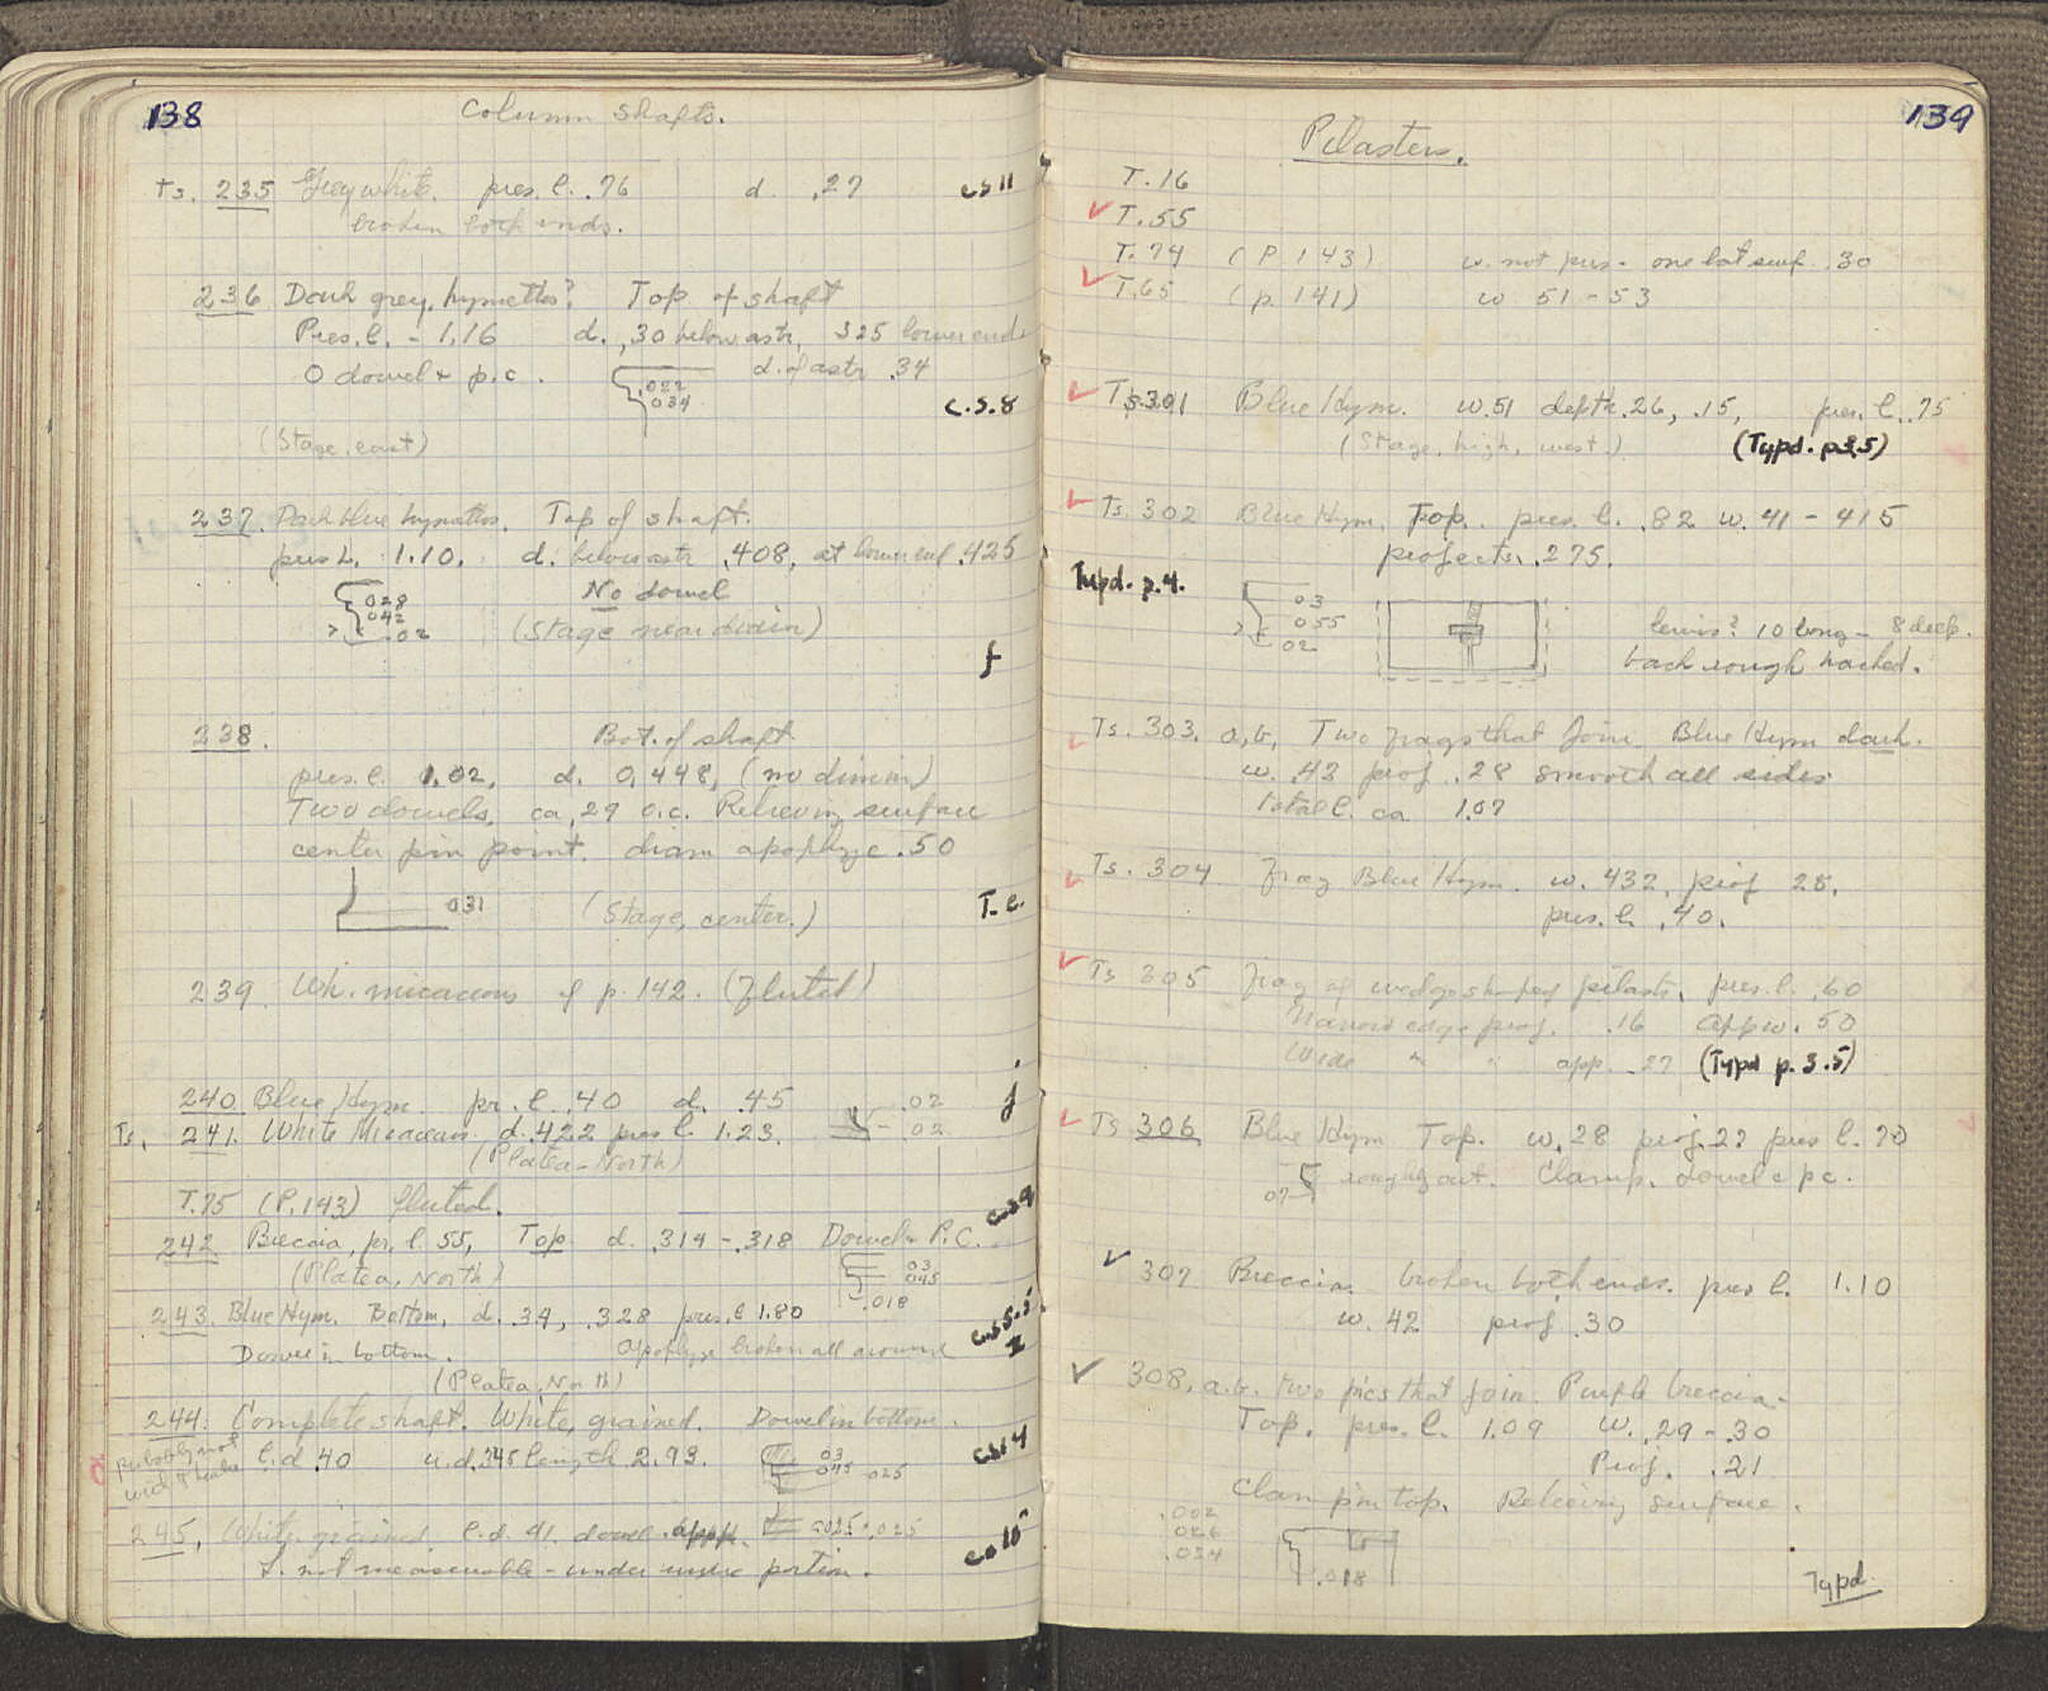 138
Column shafts.
Ts. 235 Grey white. pres. l. .76 d. .27 cs 11
broken both ends.
236 Dark grey, hymettos? Top of shaft
Pres. l. - 1.16 d. .30 below astr. 325 lower end
O dowel & p.c. d. of astr .34
.022
034
c.s.8
(Stage, east)
237. Dark blue hymettos. Top of shaft.
pres L. 1.10. d. below astr .408, at lower end .425
028
042
.02
No dowel
(Stage near drain)
f
238. Bot. of shaft
pres. l. 1.02. d. 0.448, (no dimin)
Two dowels, ca .29 o.c. Relieving surface
center pin point. diam apophyge .50
031
(Stage, center.) T. e.
239. Wh. micaceous cf p. 142. (fluted)
240 Blue Hym. pr. l. .40 d. .45 .02 j
Ts. 241. White Micaceous d. .422 pres l. 1.23. .02
(Platea - North)
T.75 (P. 143) fluted. c.s 9
242 Breccia, pr. l. 55, Top d. .314 - .318 Dowel & P.C.
(Platea, North)
03
045
.018
243. Blue Hym. Bottom, d. .34, .328 pres. l 1.80
Dowel in bottom. Apophyge broken all around
(Platea, North)
244. Complete shaft. White, grained. Dowel in bottom.
probably not
l. d .40 u. d. .345 length 2.93. 03 045 025 cs14
245. White grained l. d. 41 dowel. apph. 025 .025
L. not measurable - under portion.
139
Pilasters.
T. 16
T. 55
T. 74 (P 143) w. not pres - one lat surf .30
T.65 (p. 141) w 51 - 53
Ts.301 Blue Hym. w. 51 depth .26, .15, pres. l. .75
(Stage, high, west.) (Typd. p3.5)
Ts. 302 Blue Hym. Top. pres. l. .82 w. 41 - 415
projects .275.
Typd. p.4.
03
055
02
lewis? 10 long - 8 deep.
back rough hacked.
Ts. 303. a, b, Two frags that join Blue Hym dark.
w. .43 proj .28 smooth all sides
total l. ca 1.07
Ts. 304 Frag Blue Hym. w. 432, proj 28.
pres. l. .40.
Ts 305 Frag of wedge shaped pilaster. pres. l. .60
Narrow edge proj. .16 App w. 50
Wide " " app. .27 (Typd p. 3.5)
Ts 306 Blue Hym Top. w. 28 proj. 22 pres l. 70
07 roughly cut. Clamp, dowel & pc.
307 Breccia. broken both ends. pres l. 1.10
w. 42 proj .30
308. a.b. two pies that join. Purple breccia.
Top. pres. l. 1.09 w. .29 - .30
Proj. .21
Clamp in top. Relieving surface.
.002
026
.034
.018
Typd